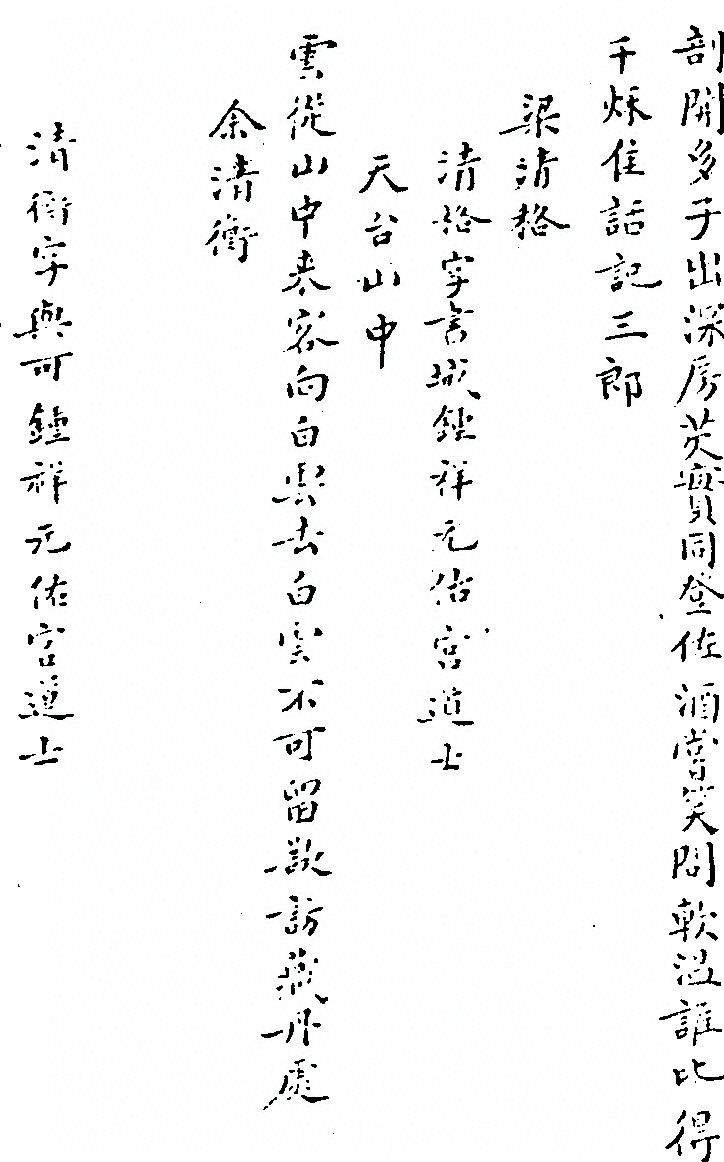 剖開多子出深房芡實同登佐酒嘗笑問軟溫誰比得
千秌佳話記三郎
梁清格
清格字言城鍾祥元佑宮道士
天台山中
雲從山中来客向白雲去白雲不可留欲訪藏丹處
余清衡
清衡字與可鍾祥元佑宮道士